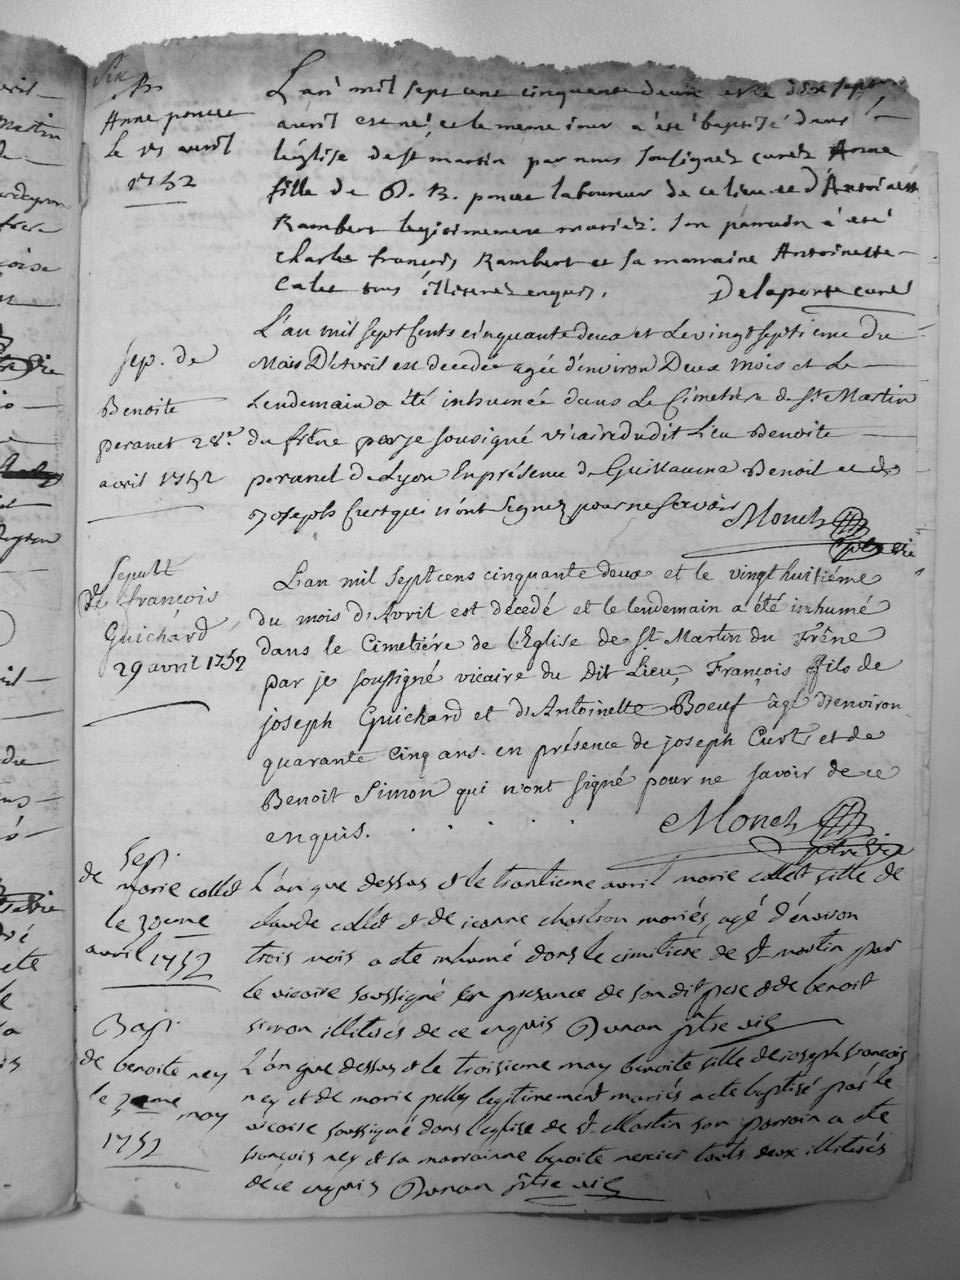 Six
B.
Anne poncet
le 17 avril
1752
L'an mil sept cent cinquante deux et le dix sept
avril est né, et le meme jour a été baptisé dans
l'église de st martin par nous soussignez curez Anne
fille de P. B. poncet laboureur de ce lieu et d'Antoinette
Rambert legitimement mariez: son parrain a été
charle francois Rambert et sa marraine Antoinette
Calet tous illiterez enquis. Delaporte curé
sep. de
Benoite
peranet 28e
avril 1752
L'an mil sept Cents cinquante deux et Le vingt septieme du
Mois D'Avril est decedée agée d'environ Deux Mois et Le
Lendemain a été inhumée dans Le Cimetière de St Martin
du frêne par je sousigné vicaire dudit Lieu Benoite
peranet de Lyon En présence de Guillaume Benoit et de
Joseph Curt qui n'ont Signez pour ne Scavoir Monet
ptre vic
sepult
de françois
Guichard
29 avril 1752
L'an mil Sept cens cinquante deux et le vingt huitième
du mois d'Avril est décedé et le lendemain a été inhumé
dans le Cimetiére de l'Eglise de St Martin du Frêne
par je soussigné vicaire du dit Lieu, François fils de
joseph Guichard et d'Antoinette Boeuf âgé d'environ
quarante Cinq ans. en présence de joseph Curt et de
Benoit Simon qui n'ont signé pour ne savoir de ce
enquis. Monet
ptre vic
Sep.
de marie collet
le 30eme
avril 1752
L'an que dessus et le trantieme avril marie collet fille de
claude collet et de jeanne charlron mariés, agé d'environ
trois mois a ete inhumé dans le cimitiere de St martin par
le vicaire soussigné En presance de son dit pere et de benoit
simon illiterés de ce enquis Dunan ptre vic
Bap.
de benoite ney
le 3eme may
1752
L'an que dessus et le troisieme may benoite fille de joseph françois
ney et de marie legitimement mariés a ete baptisé par le
vicaire soussigné dans l'eglise de St Martin son parrain a ete
françois ney et sa marrainne benoite touts deux illiterés
de ce enquis Dunan ptre vic